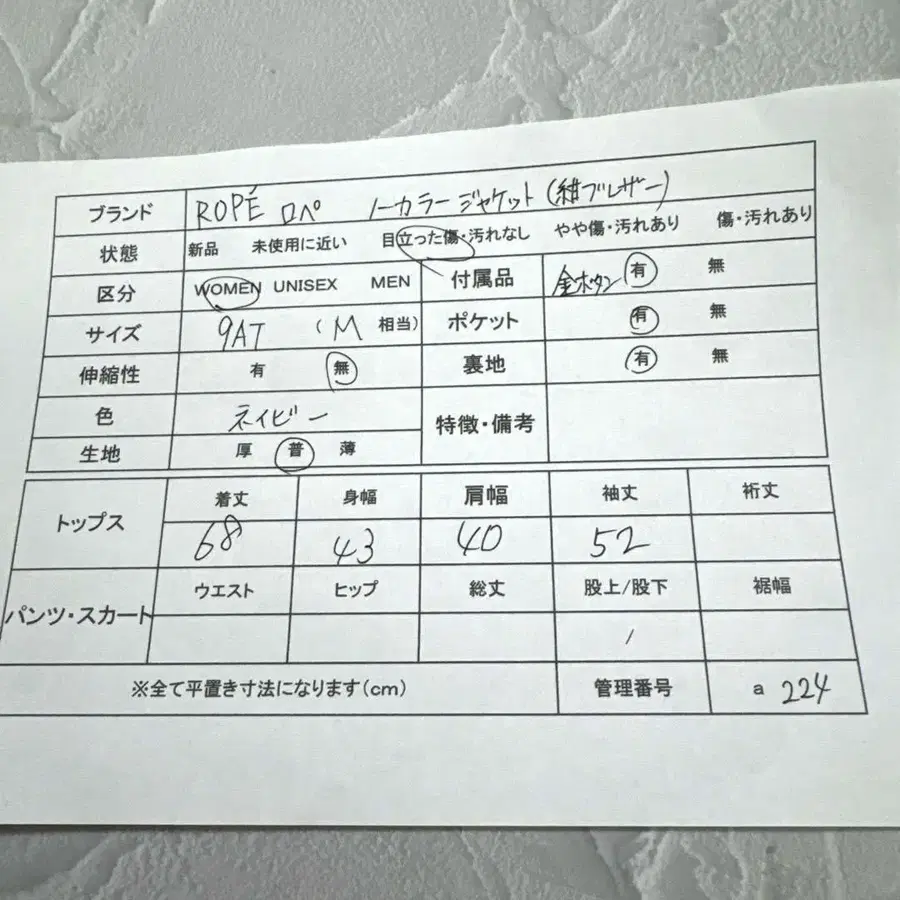 ブランド ROPÉ ロペ ノーカラージャケット(紺ブレザー)
状態 新品 未使用に近い 目立った傷・汚れなし やや傷・汚れあり 傷・汚れあり
区分 WOMEN UNISEX MEN 付属品 金ボタン 有 無
サイズ 9AT (M 相当) ポケット 有 無
伸縮性 有 無 裏地 有 無
色 ネイビー 特徴・備考
生地 厚 普 薄
トップス 着丈 身幅 肩幅 袖丈 裄丈
68 43 40 52
パンツ・スカート ウエスト ヒップ 総丈 股上/股下 裾幅
/
※全て平置き寸法になります(cm) 管理番号 a 224